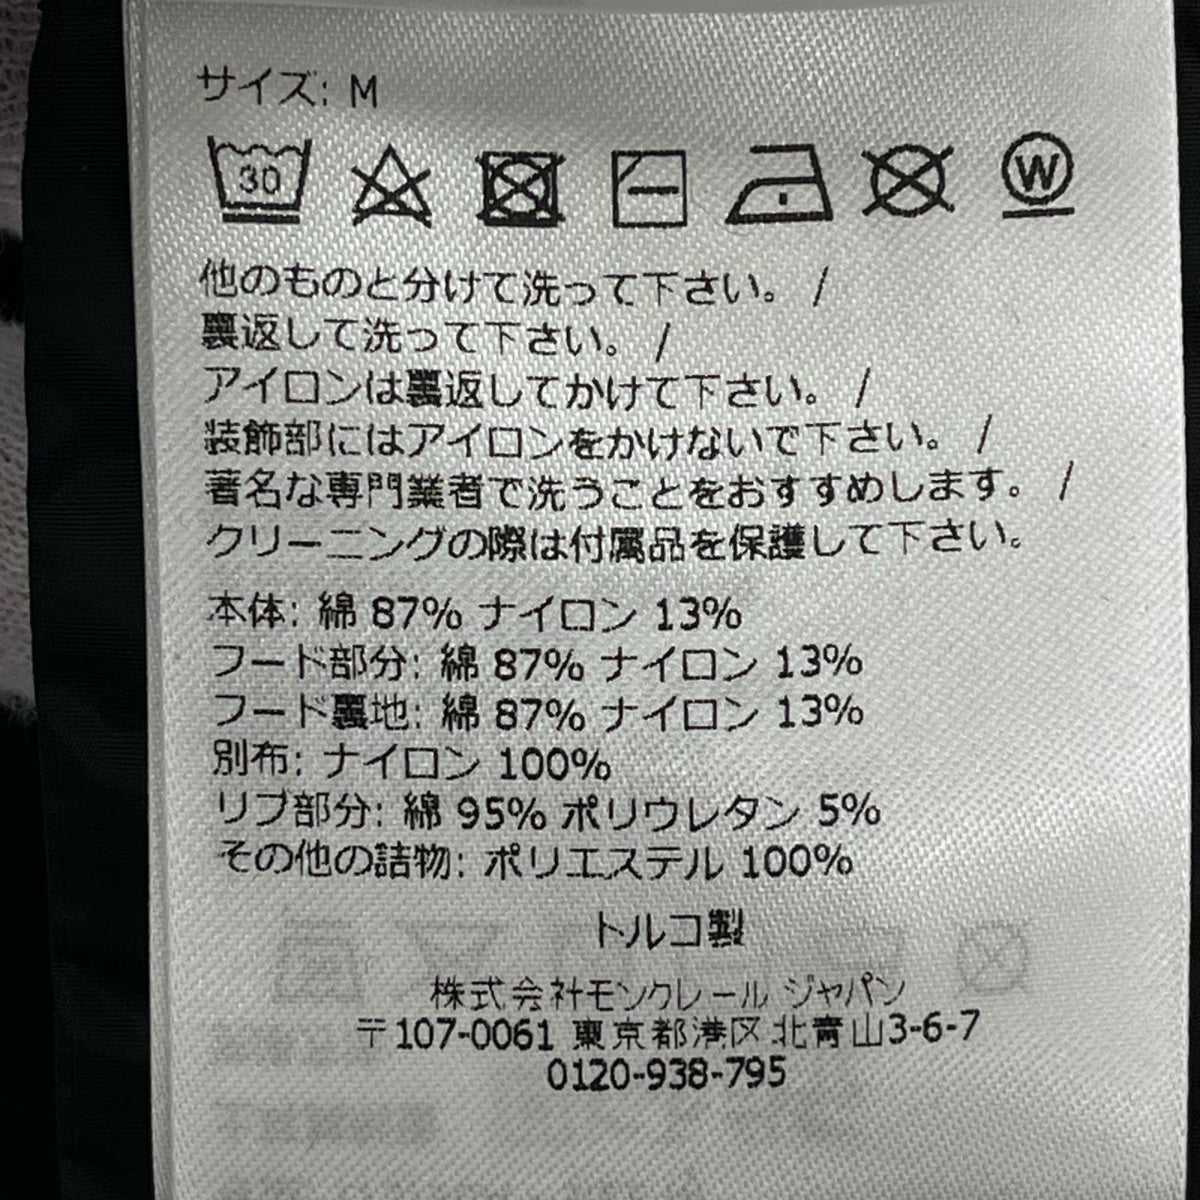 サイズ: M
30
W
他のものと分けて洗って下さい。 /
裏返して洗って下さい。 /
アイロンは裏返してかけて下さい。 /
装飾部にはアイロンをかけないで下さい。 /
著名な専門業者で洗うことをおすすめします。 /
クリーニングの際は付属品を保護して下さい。
本体: 綿 87% ナイロン 13%
フード部分: 綿 87% ナイロン 13%
フード裏地: 綿 87% ナイロン 13%
別布: ナイロン 100%
リブ部分: 綿 95% ポリウレタン 5%
その他の詰物: ポリエステル 100%
トルコ製
株式会社モンクレール ジャパン
〒107-0061 東京都港区北青山3-6-7
0120-938-795